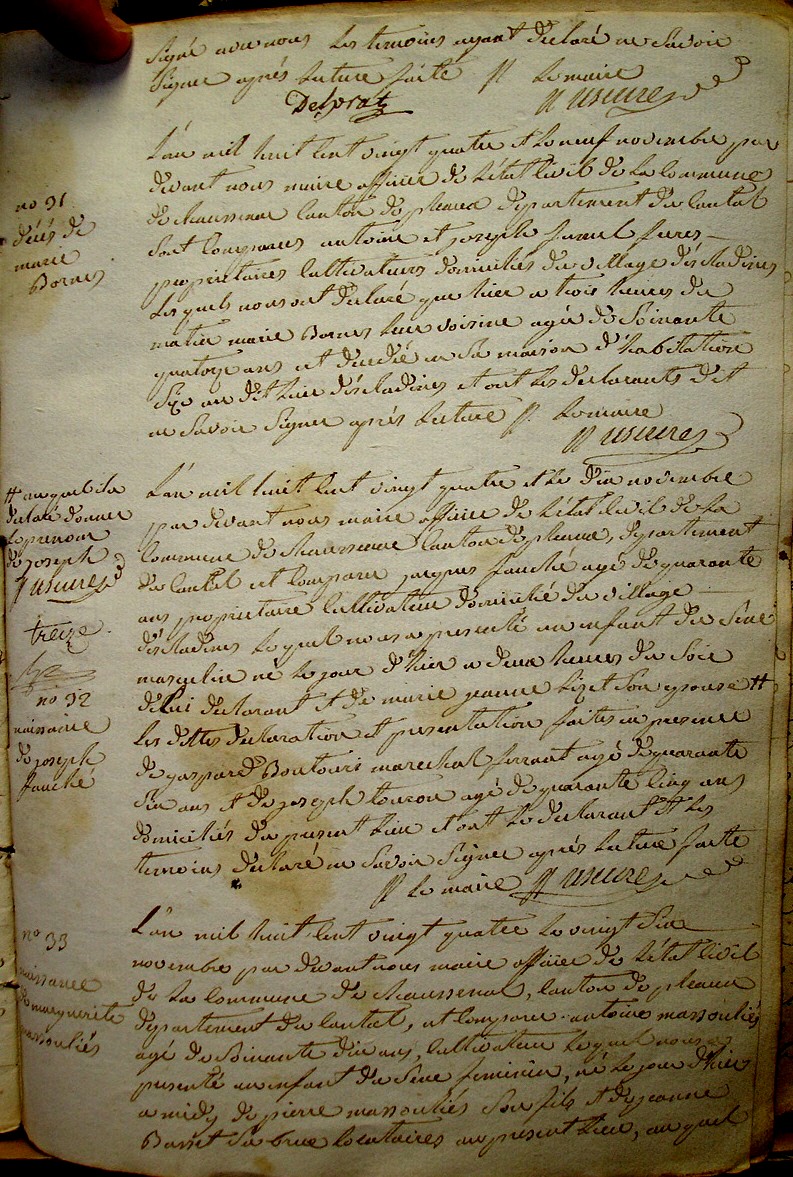 signé avec nous les temoins ayant declaré ne savoir
signer après lecture faite le maire
Delprat
no 31
décés de
marie
Bornes
L'an mil huit cent vingt quatre et le neuf novembre par
devant nous maire officier de l'état civil de la commune
de chaussenac canton de pleaux departement du cantal
sont comparus antoine et joseph frères
propriétaires cultivateurs domiciliés du village d'escladines
lesquels nous ont declaré que hier a trois heures du
matin marie Bornes leur voisine agée de soixante
quatorze ans est décédée en sa maison d'habitation
size au dit lieu d'escladines et ont les declarants dit
ne savoir signer après lecture le maire
# auquel il a
declaré donner
le prenom
de joseph
treize
no 32
naissance
de joseph
fauché
L'an mil huit cent vingt quatre et le dix novembre
par devant nous maire officier de l'état civil de la
commune de chaussenac canton de pleaux, departement
du cantal est comparu jacques fauché agé de quarante
ans propriétaire cultivateur domicilié du village
d'escladines lequel nous a presenté un enfant du sexe
masculin né le jour d'hier a deux heures du soir
de lui declarant et de marie jeanne son epouse #
les dittes declaration et presentation faites en presence
de gaspard Boutouri marechal ferrant agé de quarante
six ans et de joseph touron agé de quarante cinq ans
domiciliés du present lieu et ont le declarant et les
temoins declaré ne savoir signer après lecture faite
le maire
no 33
naissance
de marguerite
massouliés
L'an mil huit cent vingt quatre le vingt six
novembre par devant nous maire officier de l'état civil
de la commune de chaussenac, canton de pleaux
departement du cantal, est comparu antoine massouliés
agé de soixante dix ans, cultivateur lequel nous a
presenté un enfant du sexe feminin, né le jour d'hier
a midy de pierre massouliés son fils et de jeanne
Basset sa brue locataires au present lieu, auquel